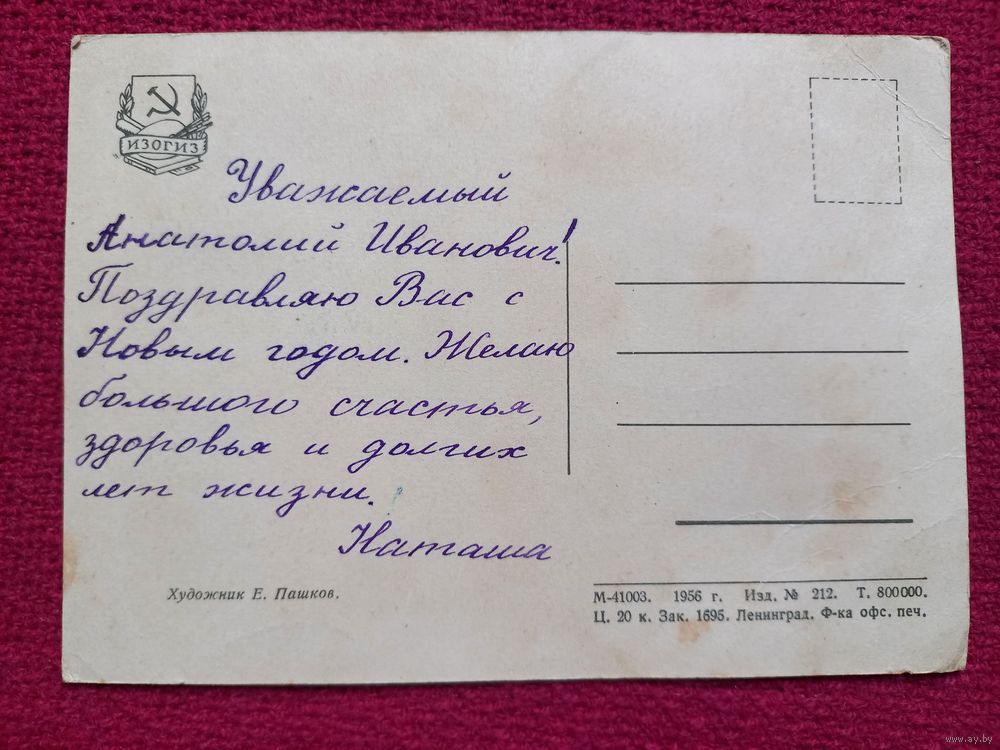 ИЗОГИЗ
Уважаемый
Анатолий Иванович!
Поздравляю Вас с
Новым годом. Желаю
большого счастья,
здоровья и долгих
лет жизни.
Наташа
Художник Е. Пашков.
М-41003. 1956 г. Изд. № 212. Т. 800000.
Ц. 20 к. Зак. 1695. Ленинград. Ф-ка офс. печ.
www.ay.by